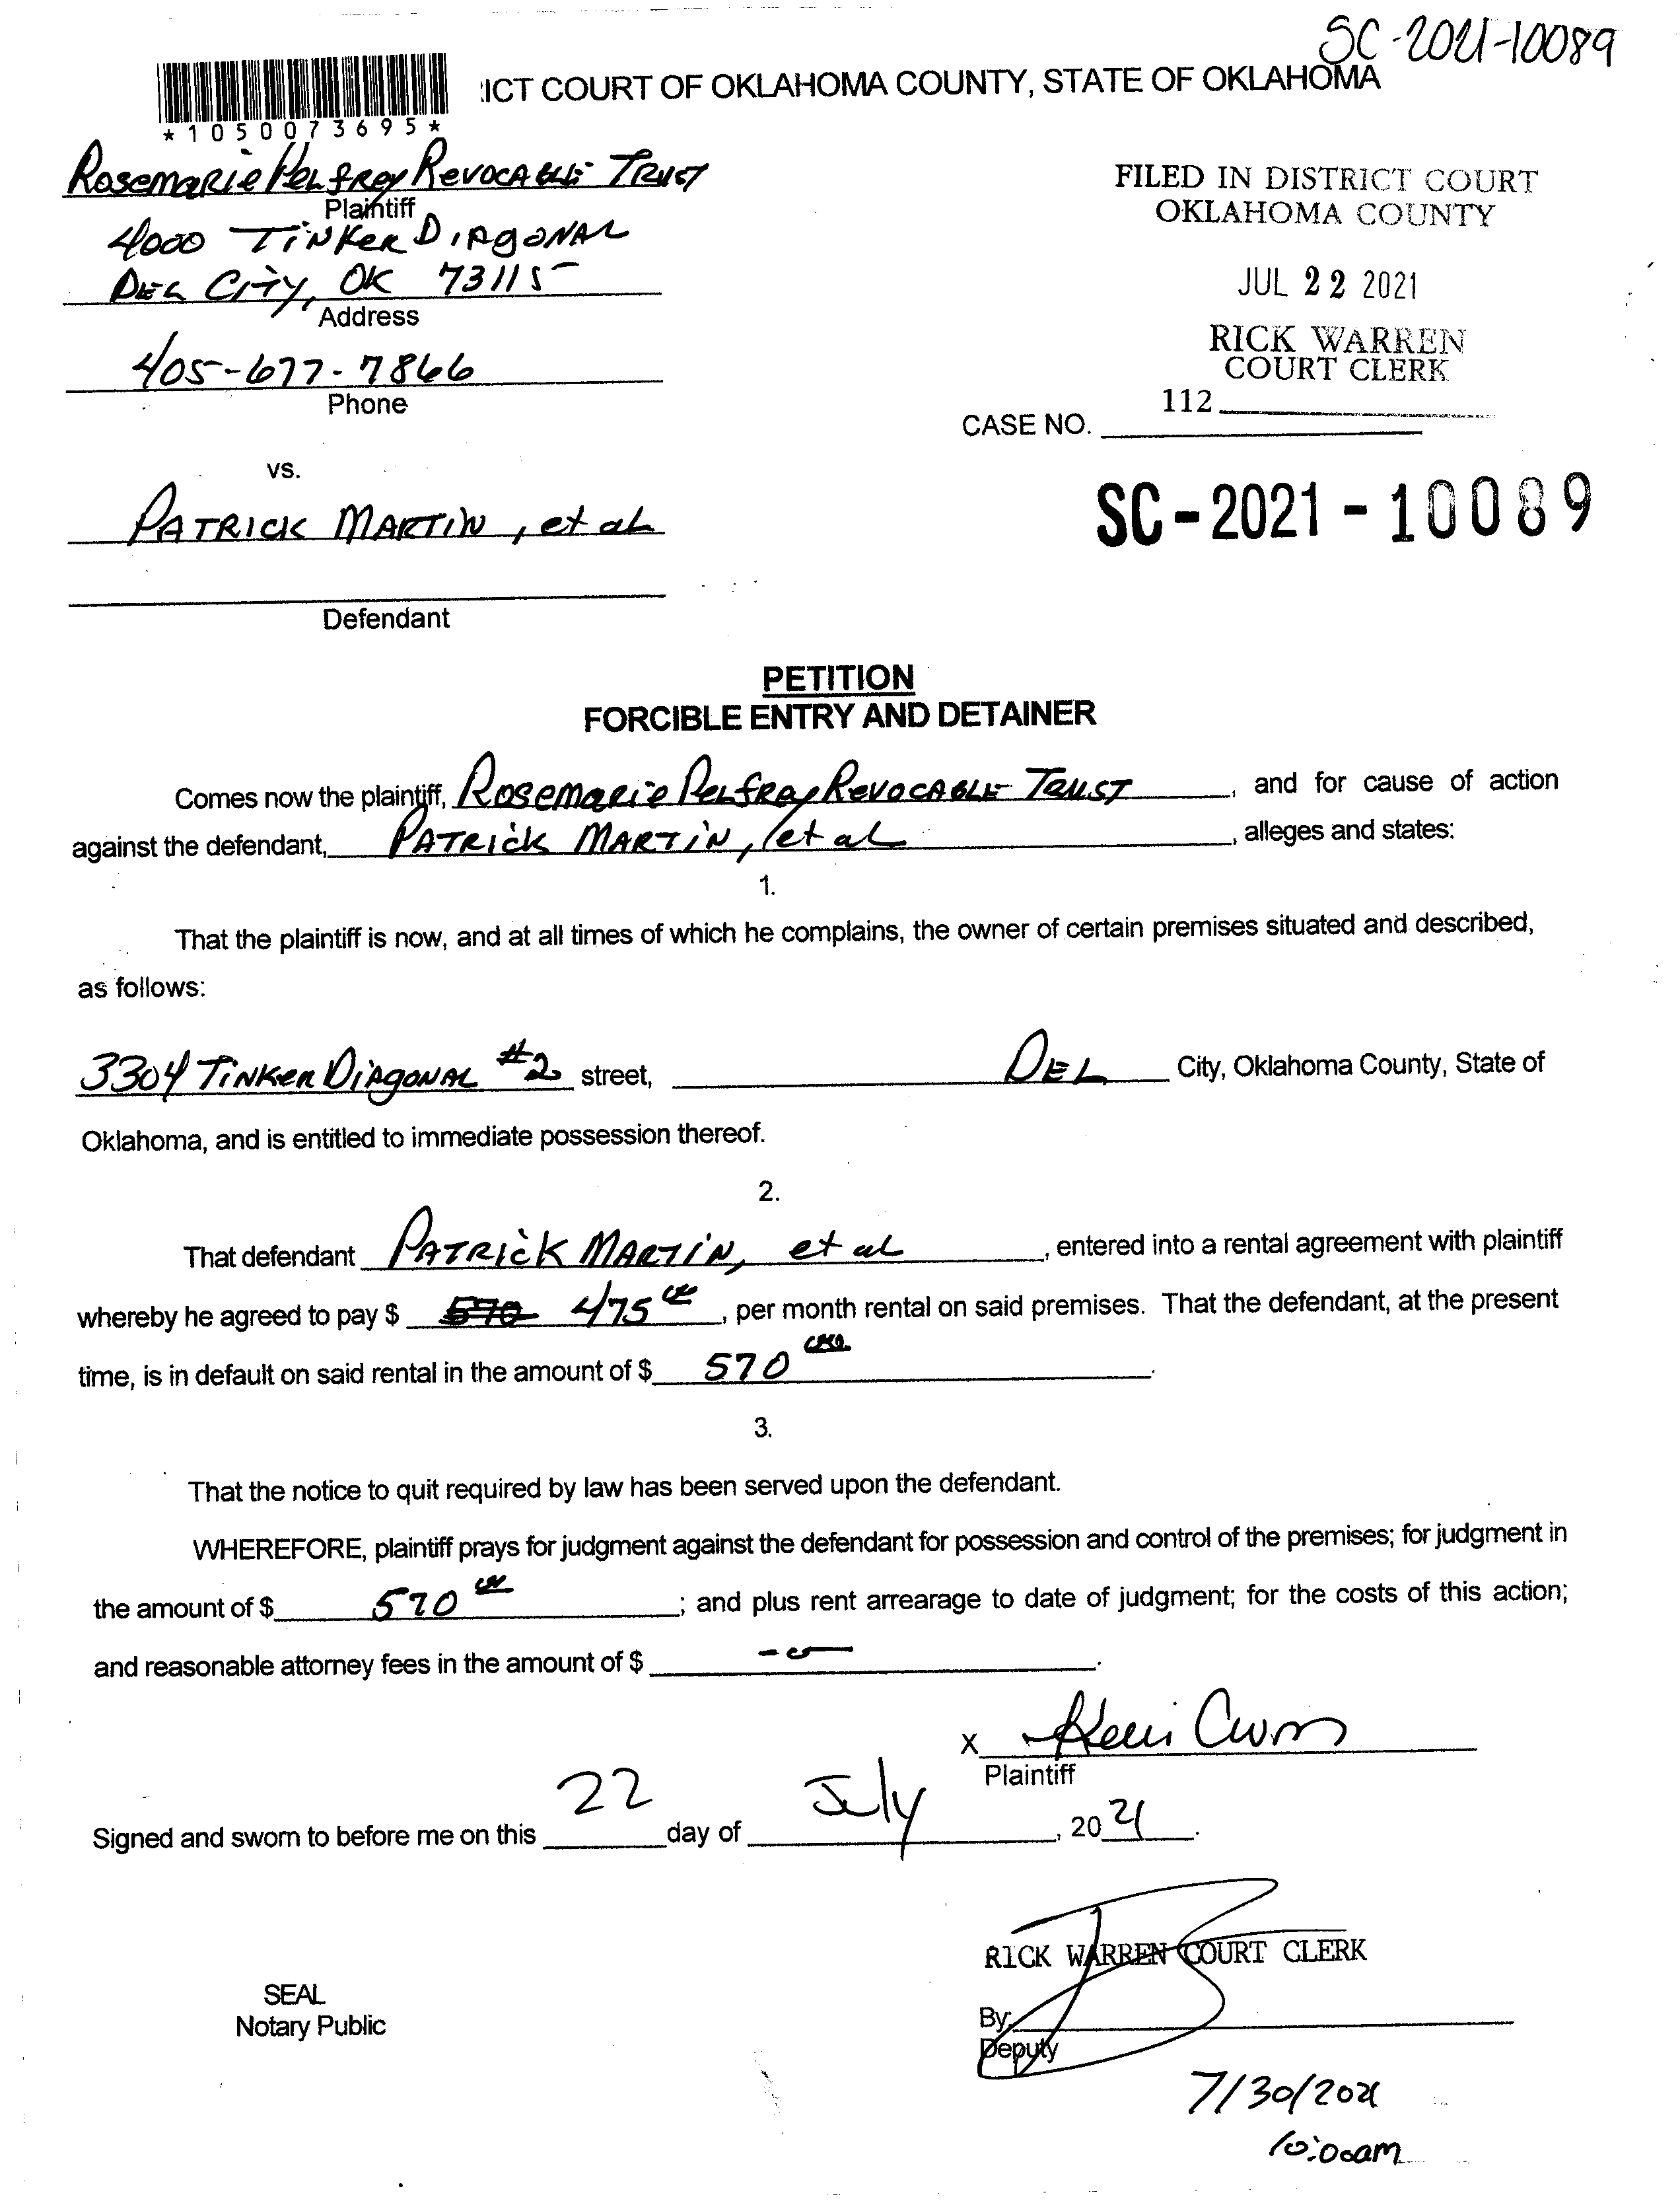 SC-2021-10089
ICT COURT OF OKLAHOMA COUNTY, STATE OF OKLAHOMA
*1050073695*
Rosemarie Pelfrey Revocable Trust
Plaintiff
4000 Tinker Diagonal
Del City, OK 73115
Address
405-677-7866
Phone
FILED IN DISTRICT COURT
OKLAHOMA COUNTY
JUL 22 2021
RICK WARREN
COURT CLERK
112
CASE NO.
SC-2021-10089
vs.
Patrick Martin, et al
Defendant
PETITION
FORCIBLE ENTRY AND DETAINER
Comes now the plaintiff, Rosemarie Pelfrey Revocable Trust, and for cause of action
against the defendant, Patrick Martin, et al, alleges and states:
1.
That the plaintiff is now, and at all times of which he complains, the owner of certain premises situated and described,
as follows:
3304 Tinker Diagonal #2 street, Del City, Oklahoma County, State of
Oklahoma, and is entitled to immediate possession thereof.
2.
That defendant Patrick Martin, et al, entered into a rental agreement with plaintiff
whereby he agreed to pay $ 570 475 00, per month rental on said premises. That the defendant, at the present
time, is in default on said rental in the amount of $ 570 00.
3.
That the notice to quit required by law has been served upon the defendant.
WHEREFORE, plaintiff prays for judgment against the defendant for possession and control of the premises; for judgment in
the amount of $ 570 00; and plus rent arrearage to date of judgment; for the costs of this action;
and reasonable attorney fees in the amount of $ -0-.
X
Plaintiff
Signed and sworn to before me on this 22 day of July, 2021.
RICK WARREN COURT CLERK
SEAL
Notary Public
By:
Deputy
7/30/2021
10:00am